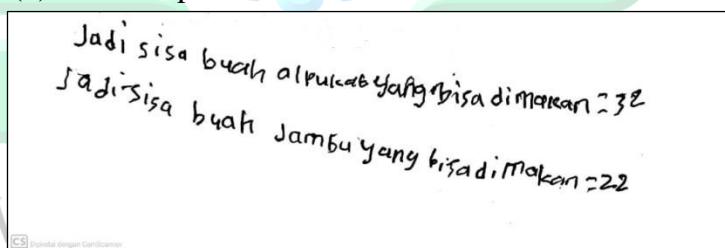 Jadi sisa buah alpukat yang bisa dimakan = 32
Jadi sisa buah Jambu yang bisa dimakan = 22
CS Dipindai dengan CamScanner